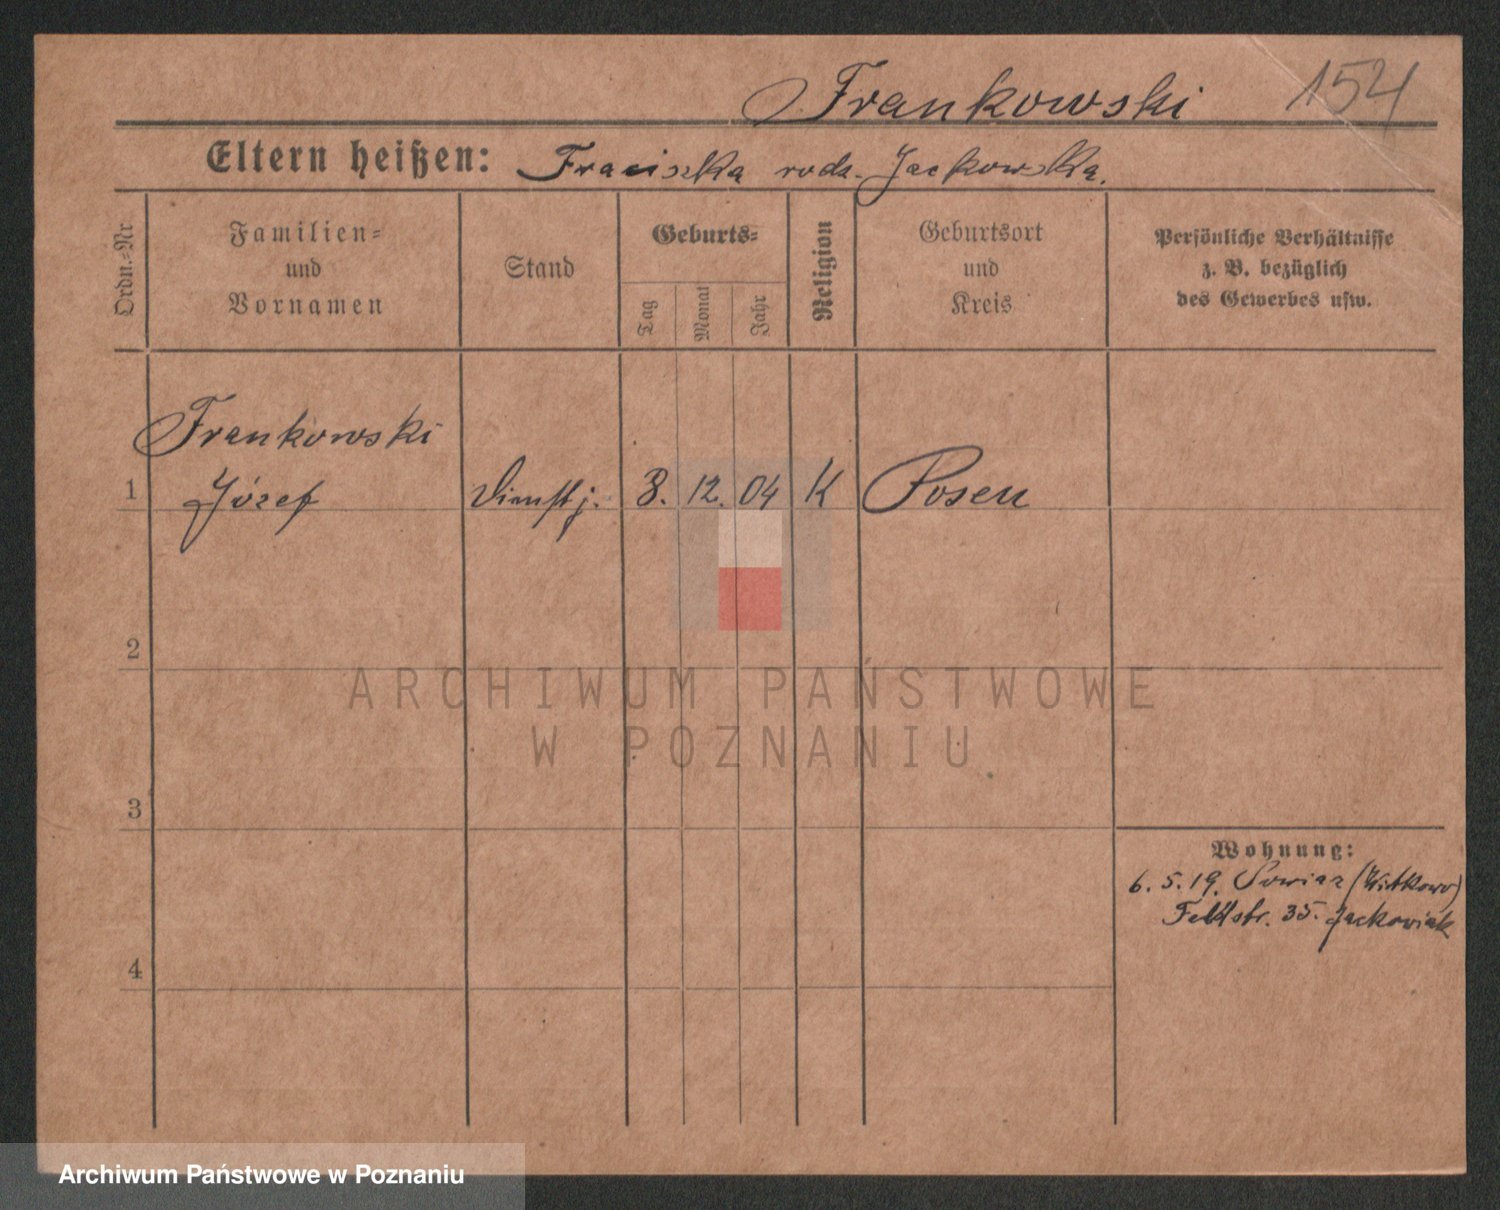 Frankowski 154
Eltern heißen: Fraciszka rodz. Jackowska.
Ordn.=Nr
Familien=
und
Vornamen
Stand
Geburts=
Tag
Monat
Jahr
Religion
Geburtsort
und
Kreis
Persönliche Verhältnisse
z. B. bezüglich
des Gewerbes usw.
Frankowski
1 Józef Dienstj. 3. 12. 04 K Posen
2
ARCHIWUM PAŃSTWOWE
W POZNANIU
3
Wohnung:
6. 5. 19. (Witkowo)
Feldstr. 35. Jackowiak
4
Archiwum Państwowe w Poznaniu